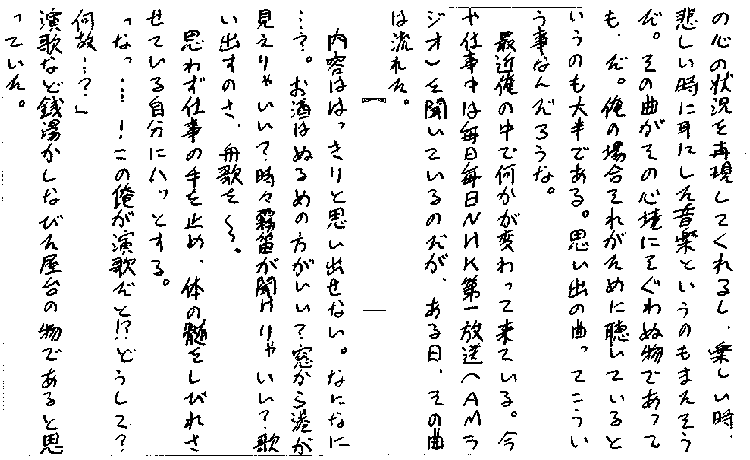 の心の状況を再現してくれるし、楽しい時、
悲しい時に耳にした音楽というのもまたそう
だ。その曲がその心境にそぐわぬ物であって
も、だ。俺の場合それがために聴いていると
いうのも大半である。思い出の曲ってこうい
う事なんだろうな。
最近俺の中で何かが変わって来ている。今
や仕事中は毎日毎日NHK第一放送(AMラ
ジオ)を聞いているのだが、ある日、その曲
は流れた。
内容ははっきりと思い出せない。なになに
…?。お酒はぬるめの方がいい?窓から港が
見えりゃいい?時々霧笛が聞けりゃいい?歌
い出すのさ、舟歌を〜。
思わず仕事の手を止め、体の髄をしびれさ
せている自分にハッとする。
「なっ…!この俺が演歌だと!?どうして?
何故…?」
演歌など銭湯かしなびた屋台の物であると思
っていた。